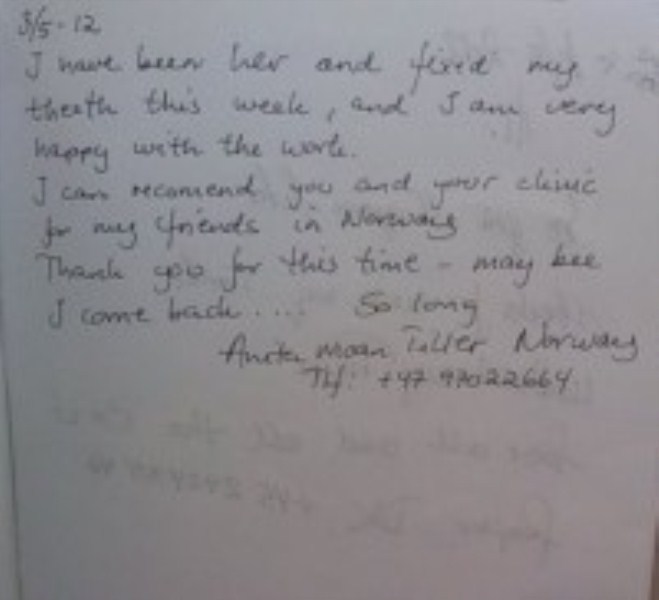 3/5-12
I have been her and fixed my
theeth this week, and I am very
happy with the work.
I can recomend you and your clinic
for my friends in Norway
Thank you for this time - may bee
I come back.... So long
Anita Moan Tiller Norway
Tlf: +47 97022664